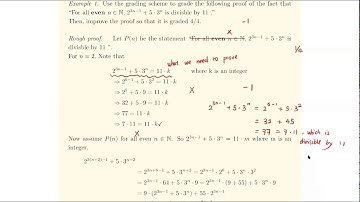 Example 1. Use the grading scheme to grade the following proof of the fact that
"For all even n ∈ ℕ, 2^{3n−1} + 5 · 3^n is divisible by 11 ."
Then, improve the proof so that it is graded 4/4.
−1
x
Rough proof. Let P(n) be the statement "For all even n ∈ ℕ, 2^{3n−1} + 5 · 3^n is divisible by 11 ".
1/2
For n = 2, Note that
what we need to prove
2^{3n−1} + 5 · 3^n = 11 · k where k is an integer
⇒ 2^{6−1} + 5 · 3^2 = 11 · k
⇒ 2^5 + 5 · 9 = 11 · k
⇒ 32 + 5 · 9 = 11 · k
⇒ 77 = 11 · k
⇒ 7 · 11 = 11 · k✓
x
−1
2^{3n−1} + 5 · 3^n = 2^{6−1} + 5 · 3^2
= 32 + 45
= 77 = 7 · 11 , which is
divisible by 11
x
Now assume P(n) for all even n ∈ ℕ. So 2^{3n−1} + 5 · 3^n = 11 · m where m is an
integer.
2^{3(n+2)−1} + 5 · 3^{n+2}
= 2^{3n+6−1} + 5 · 3^{n+2} = 2^{3n−1} · 2^6 + 5 · 3^n · 3^2
= 2^{3n−1} · 64 + 5 · 3^n · 9 = 2^{3n−1} · (9 + 55) + 5 · 3^n · 9
= 9 · (2^{3n−1} + 5 · 3^n) + 55 · 2^{3n−1}